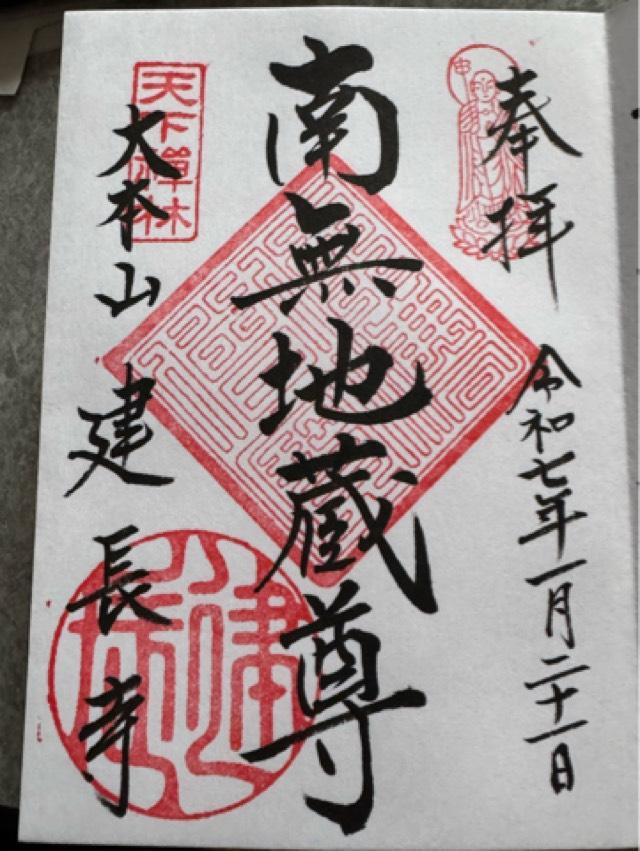 奉拝
令和七年一月二十一日
南無地蔵尊
天下禅林
大本山 建長寺